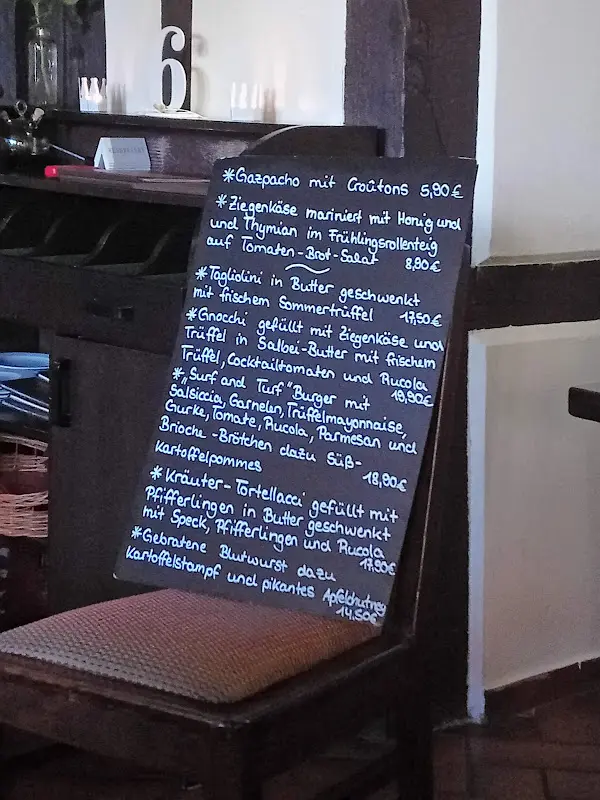 6
*Gazpacho mit Croûtons 5,90€
*Ziegenkäse mariniert mit Honig und
und Thymian im Frühlingsrollenteig
auf Tomaten-Brot-Salat 8,90€
*Tagliolini in Butter geschwenkt
mit frischem Sommertrüffel 17,50€
*Gnocchi gefüllt mit Ziegenkäse und
Trüffel in Salbei-Butter mit frischem
Trüffel, Cocktailtomaten und Rucola
19,90€
*„Surf and Turf" Burger mit
Salsiccia, Garnelen, Trüffelmayonnaise,
Gurke, Tomate, Rucola, Parmesan und
Brioche-Brötchen dazu Süß-
kartoffelpommes 18,90€
*Kräuter-Tortellacci gefüllt mit
Pfifferlingen in Butter geschwenkt
mit Speck, Pfifferlingen und Rucola
17,90€
*Gebratene Blutwurst dazu
Kartoffelstampf und pikantes Apfelchutney
14,50€